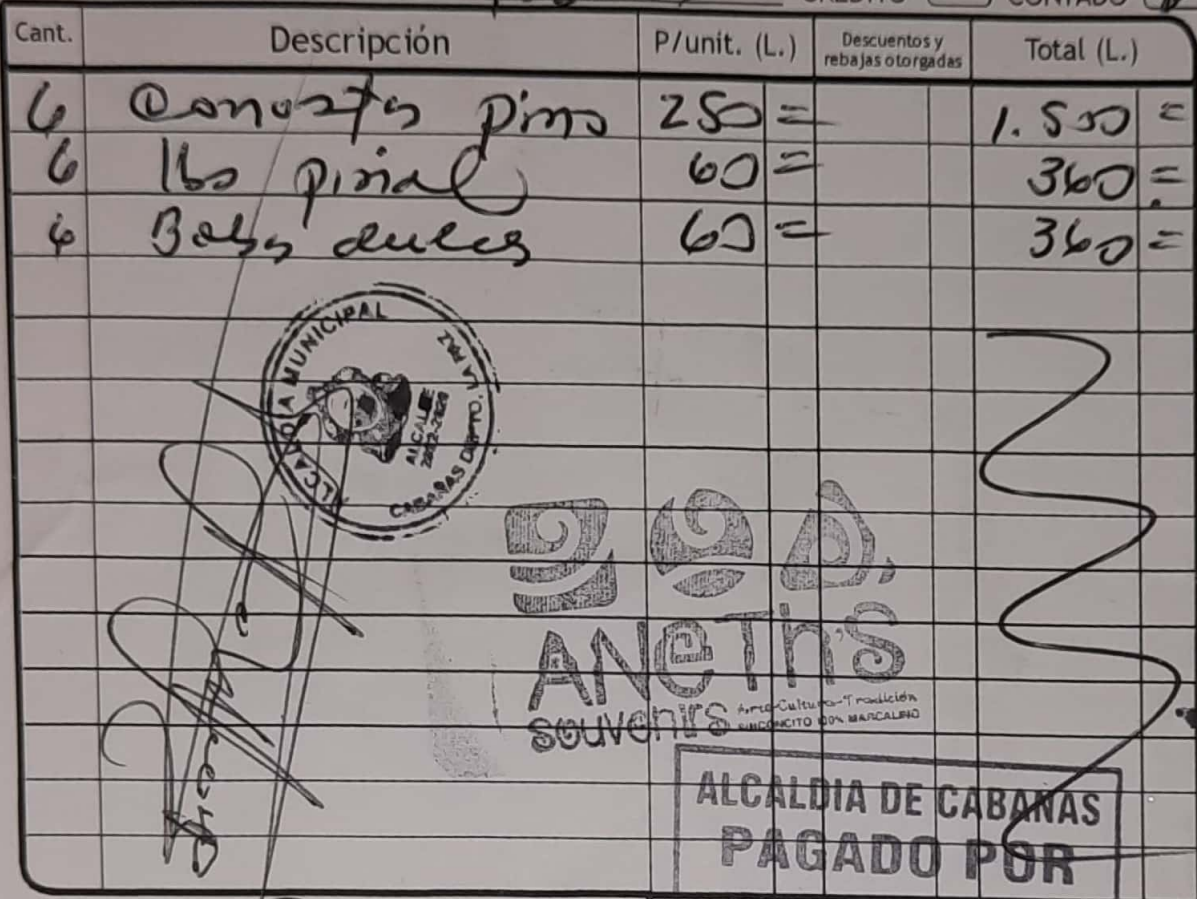 CONTADO
Cant. Descripción P/unit. (L.) Descuentos y rebajas otorgadas Total (L.)
6 Canasta pino 250 = 1.500 =
6 lbs 60 = 360 =
6 Bolsa dulces 60 = 360 =
ALCALDIA MUNICIPAL
CABAÑAS DEPTO. LA PAZ
ALCALDE
ANeTh'S
souvenirs Arte-Cultura-Tradición
RINCONCITO 100% MARCALINO
ALCALDIA DE CABAÑAS
PAGADO POR